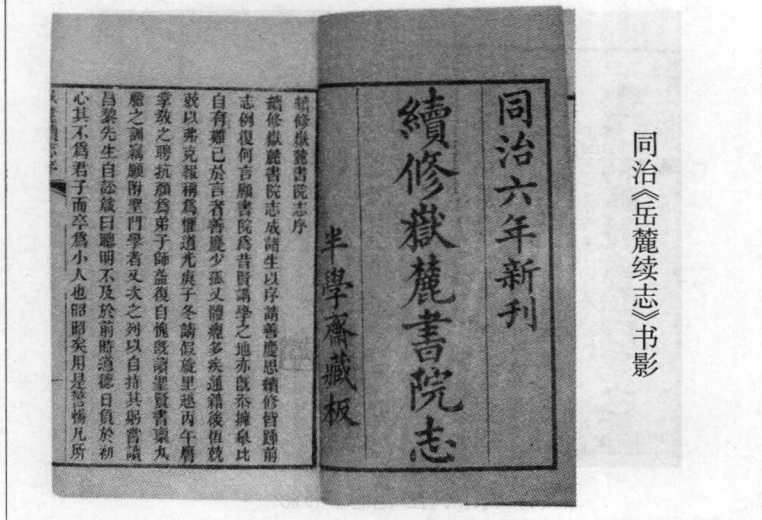 同治《岳麓续志》书影
同治六年新刊
續修嶽麓書院志
半學齋藏板
續修嶽麓書院志序
續修嶽麓書院志成諸生以序請善慶思續修皆踵前
志例復何言顧書院為昔賢講學之地亦既忝擁皋比
自有難已於言者善慶少孤又體癯多疾通籍後恆兢
兢以弗克報稱為懼道光庚子冬請假旋里越丙午膺
掌教之聘抗顏為弟子師益復自愧既讀聖賢書稟丸
膽之訓竊願附聖門學者又次之列以自持其躬嘗讀
昌黎先生自訟箴曰聰明不及於前時道德日負於初
心其不為君子而卒為小人也昭昭矣用是警惕凡所